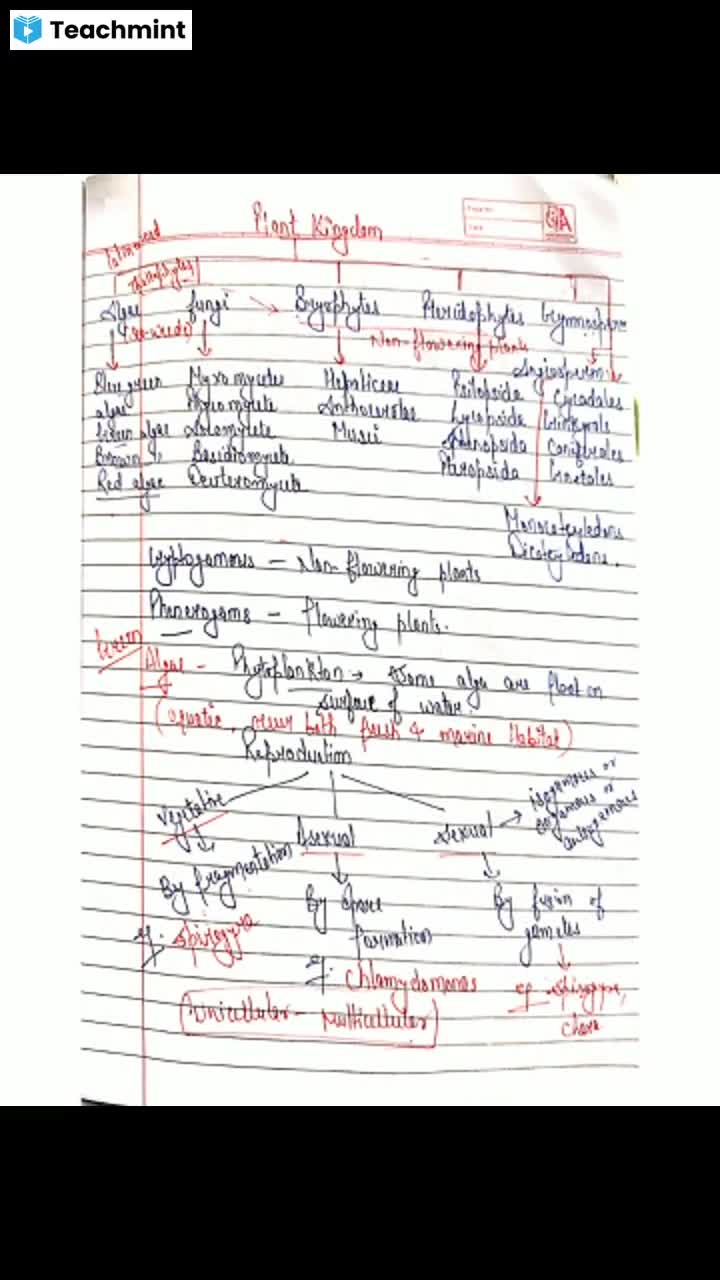 Teachmint
Plant Kingdom
Thallophytes
Algae fungi Bryophytes Pteridophytes Gymnosperm
(sea-weeds)
Non-flowering plants
Angiosperm
Blue green Myxomycetes Hepaticeae Psilopsida Cycadales
algae Phycomycete Anthocerotae Lycopsida Ginkgoals
Green algae Ascomycete Musci Coniferales
Brown " Basidiomycete Pteropsida Gnetales
Red algae Deuteromycete
Monocotyledons
Dicotyledons.
Cryptogamous – Non-flowering plants
Phanerogams – flowering plants.
Green
Algae - Phytoplankton → Some alga are float on
surface of water.
(aquatic, occur both fresh & marine Habitat)
Reproduction
Vegetative Asexual Sexual → isogamous or
oogamous or
anisogamous
By fragmentation By spore By fusion of
formation gametes
eg. Spirogyra
eg. Chlamydomonas eg. Spirogyra,
chara
Unicelluler – Multicelluler